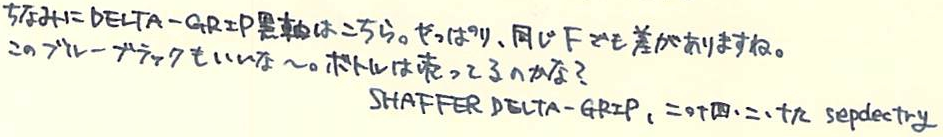 ちなみに DELTA-GRIP 黒軸はこちら。やっぱり、同じFでも差がありますね。
このブルーブラックもいいな〜。ボトルは売ってるのかな?
SHAFFER DELTA-GRIP, 二〇十四.二.十た sepdectry